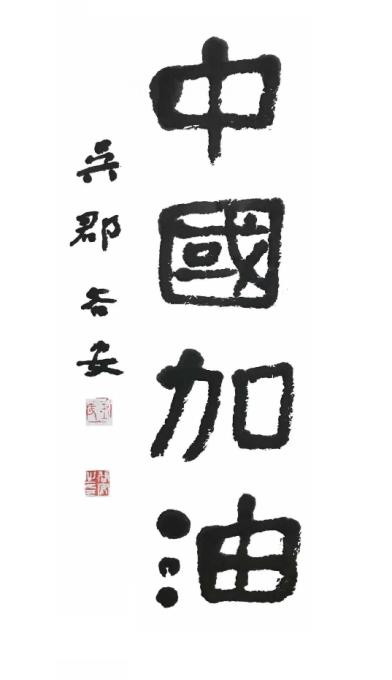 中國加油
吳郡谷安